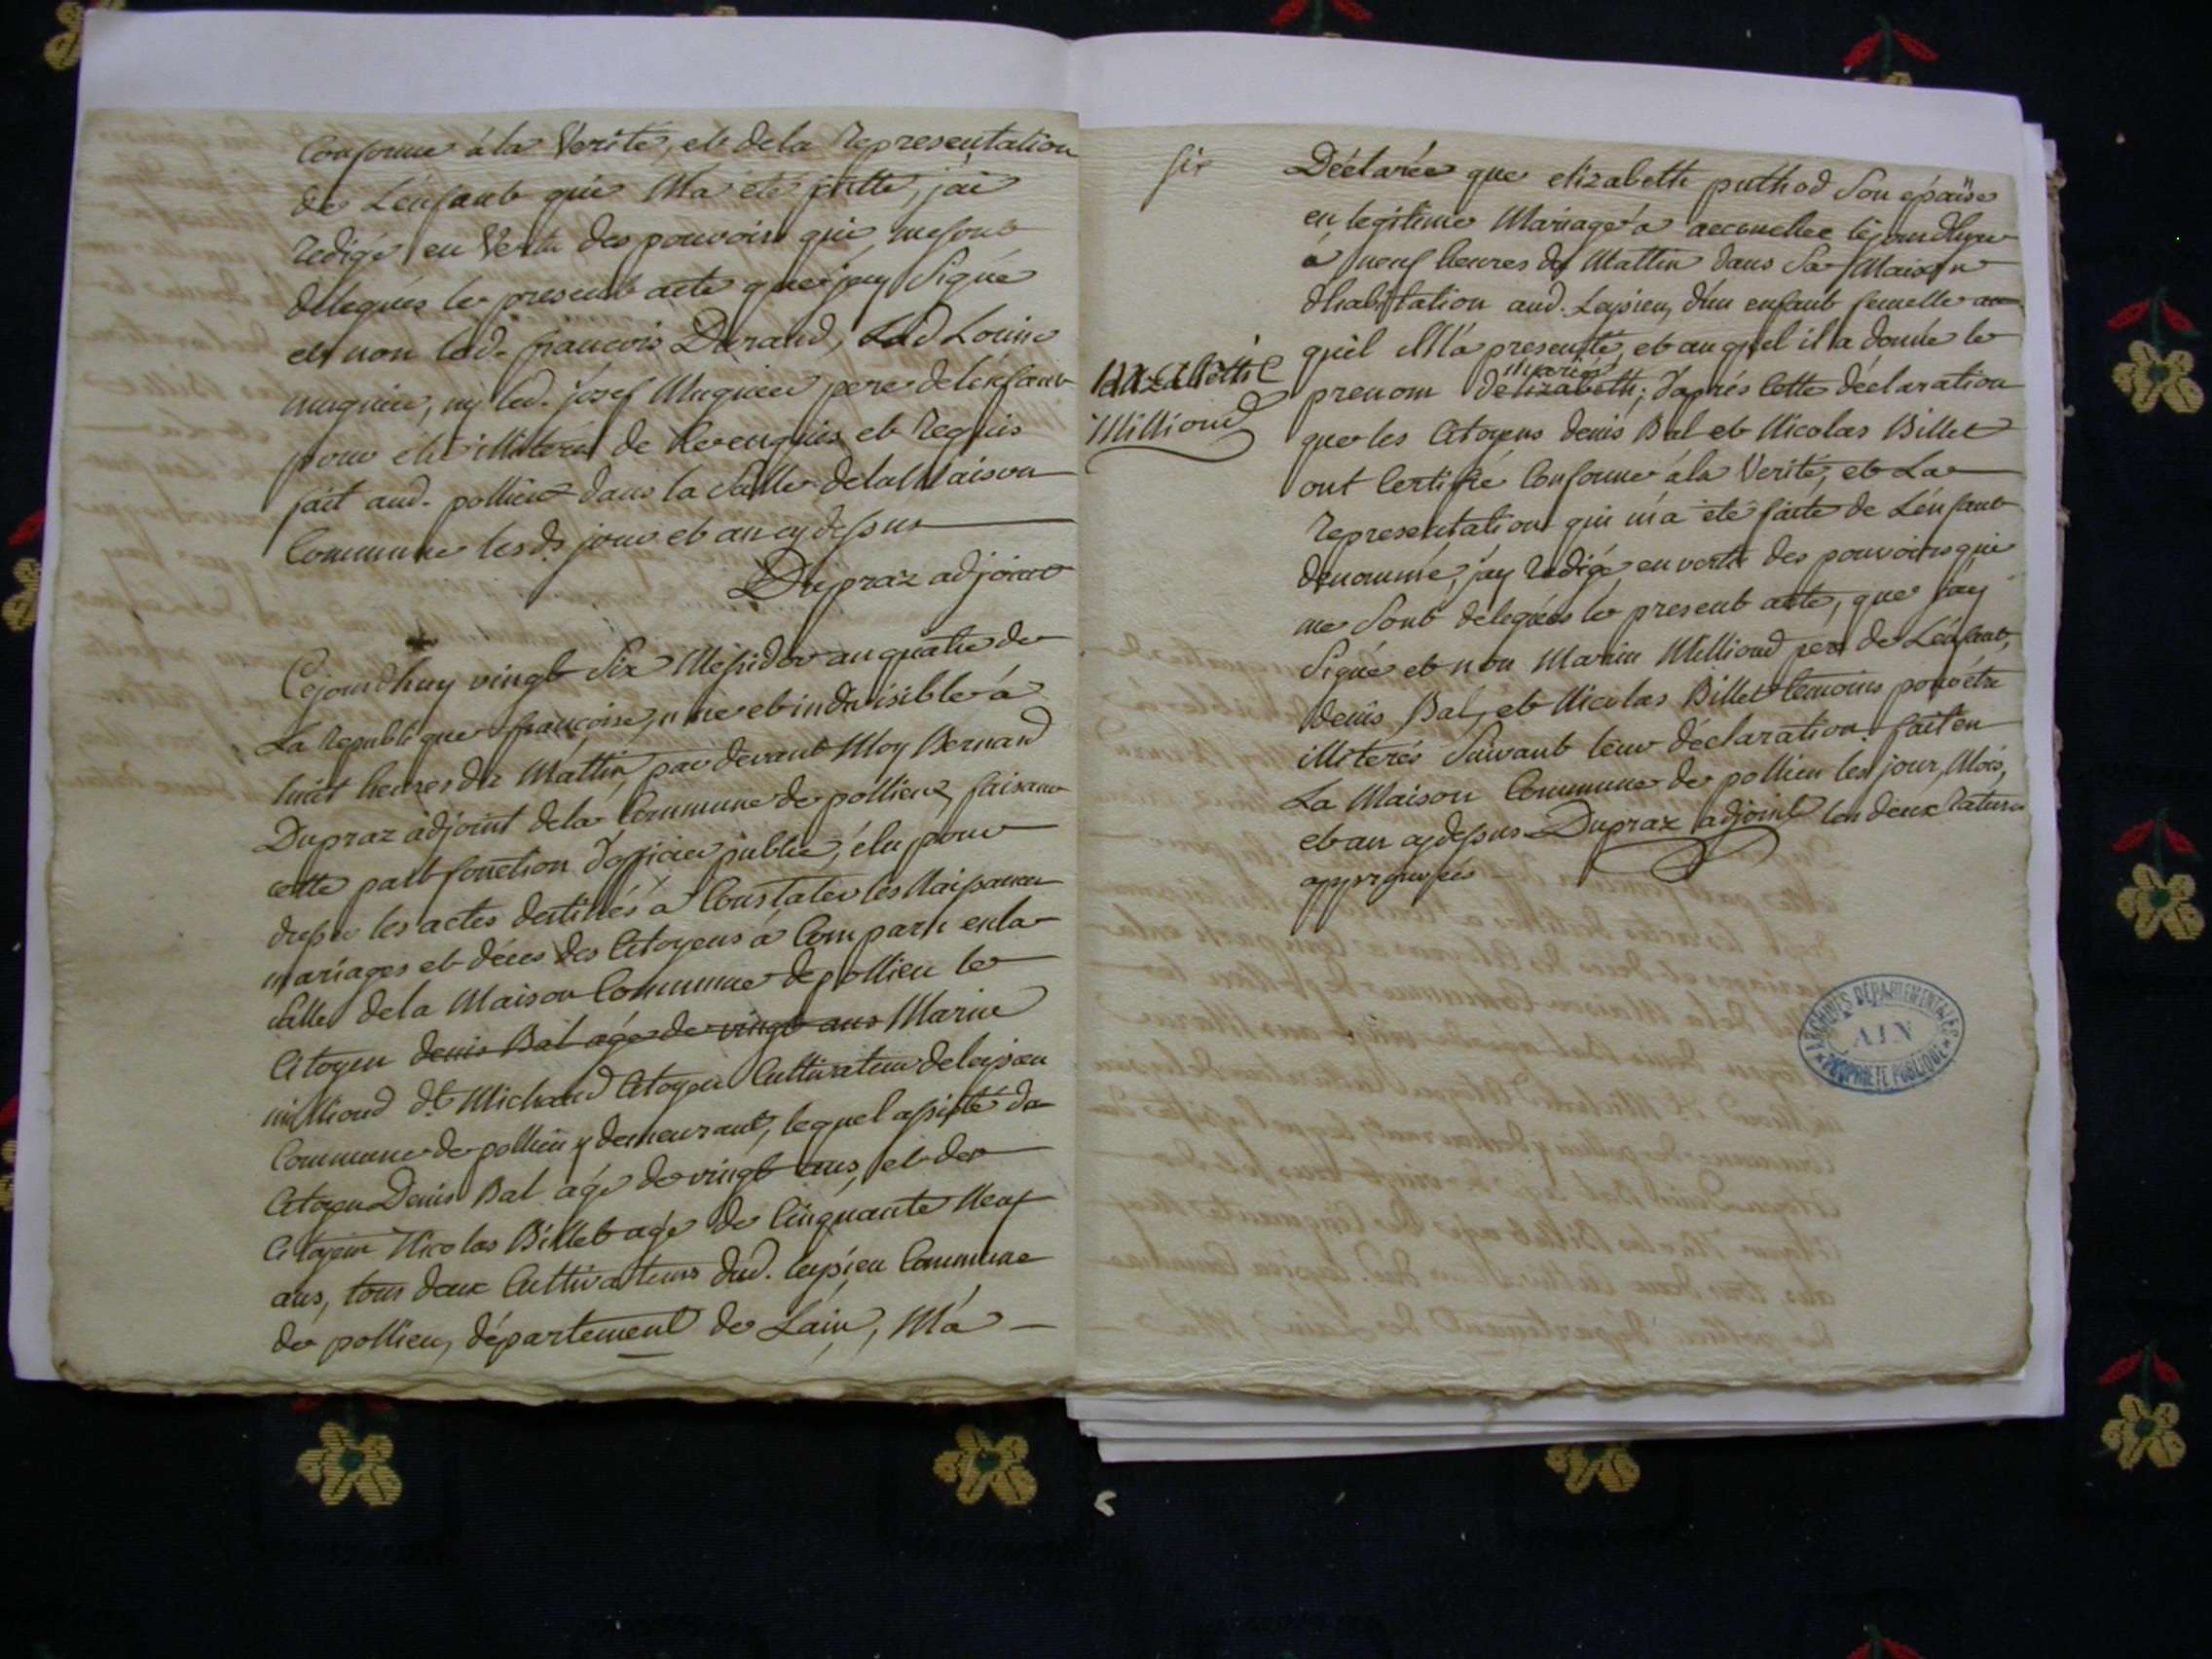 Conforme à la Verité, et de la Representation
de L'enfant qui M'a eté faitte, j'ai
redigé en Vertu des pouvoirs qui me sont
delegués le present acte que j'ay Signé
et non led. françois Durand, Lad Louise
muguier, ny led. josef Muguier pere de l'enfant
pour etre illiterés de Ce enquis et Requis
fait aud. pollieu dans la Salle de la Maison
Commune les ds. jour et an cy dessus
Dupraz adjoint
Cejourdhuy vingt Six Messidor an quatre de
La Republique françoise, une et indivisible à
huit heures du Mattin, par devant Moy Bernard
Dupraz adjoint de la Commune de pollieu, faisant
cette part fonction d'officier public, élu pour
dresser les actes destinés à Constater les Naissances
mariages et décès des Citoyens à Comparu en la
Salle de la Maison Commune de pollieu le
Citoyen denis Bal agé de vingt ans Marin
millioud dt Michaud Citoyen Cultivateur de leysieu
Commune de pollieu y demeurant, lequel assisté du
Citoyen Denis Bal agé de vingt ans, et de
Citoyen Nicolas Billet agé de Cinquante Neuf
ans, tous deux Cultivateurs dud. leysieu Commune
de pollieu, département de L'ain, M'a
six
Déclarée que elizabeth puthod Son épouse
en legitime Mariage a accouchee cejourdhuy
à neuf heures du Mattin dans Sa Maison
d'habitation aud. Leysieu, d'un enfant femelle
qu'il M'a presentté, et auquel il a donné le
Elizabeth
Millioud
prenom d'elizabeth; d'aprés Cette déclaration
que les Citoyens denis Bal et Nicolas Billet
ont Certifié Conforme à la Verité, et La
Representation qui m'a eté faite de L'enfant
denommé, j'ay redigé en vertu des pouvoirs qui
me Sont delegués le present acte, que j'ay
Signé et non Marin Millioud pere de L'enfant,
denis Bal, et Nicolas Billet temoins pour étre
illiterés Suivant leur déclaration. fait en
La Maison Commune de pollieu les jour, Mois,
et an cy dessus Dupraz adjoint les deux Ratures
approuvées
ARCHIVES DÉPARTEMENTALES
AIN
PROPRIÉTÉ PUBLIQUE